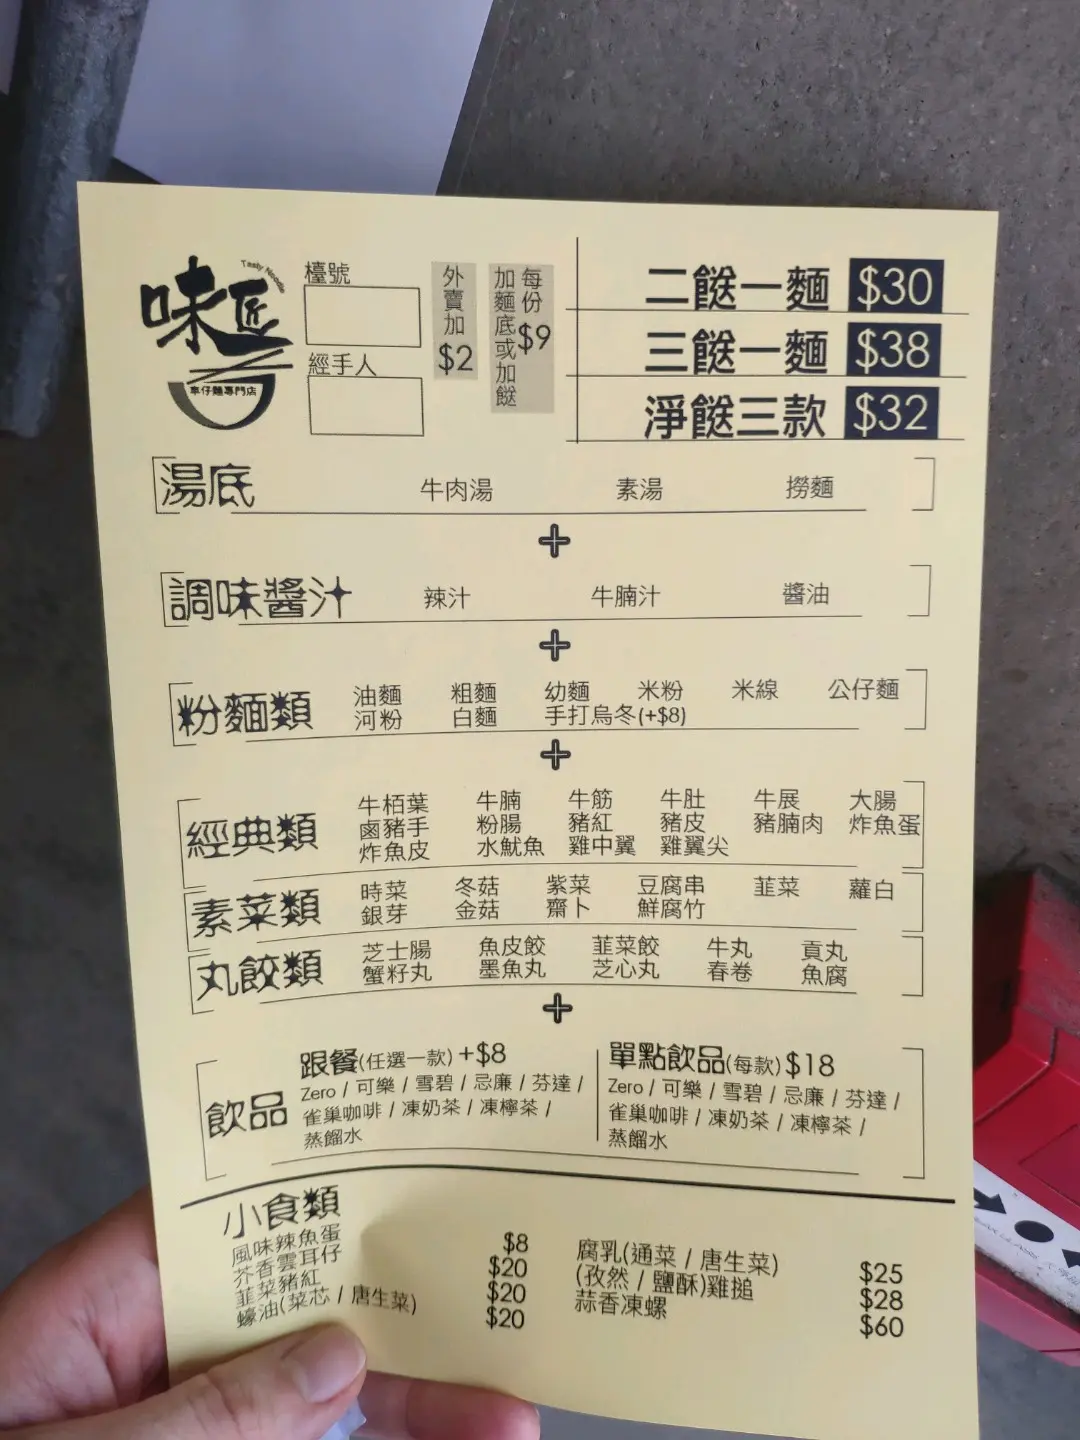 味匠
Tasty Noodle
車仔麵專門店
檯號
經手人
外賣加$2
每份$9
加麵底或加餸
二餸一麵 $30
三餸一麵 $38
淨餸三款 $32
湯底 牛肉湯 素湯 撈麵
+
調味醬汁 辣汁 牛腩汁 醬油
+
粉麵類 油麵 粗麵 幼麵 米粉 米線 公仔麵
河粉 白麵 手打烏冬(+$8)
+
經典類 牛栢葉 牛腩 牛筋 牛肚 牛展 大腸
鹵豬手 粉腸 豬紅 豬皮 豬腩肉 炸魚蛋
炸魚皮 水魷魚 雞中翼 雞翼尖
素菜類 時菜 冬菇 紫菜 豆腐串 韮菜 蘿白
銀芽 金菇 齋卜 鮮腐竹
丸餃類 芝士腸 魚皮餃 韮菜餃 牛丸 貢丸
蟹籽丸 墨魚丸 芝心丸 春卷 魚腐
+
飲品
跟餐(任選一款)+$8
Zero / 可樂 / 雪碧 / 忌廉 / 芬達 /
雀巢咖啡 / 凍奶茶 / 凍檸茶 /
蒸餾水
單點飲品(每款)$18
Zero / 可樂 / 雪碧 / 忌廉 / 芬達 /
雀巢咖啡 / 凍奶茶 / 凍檸茶 /
蒸餾水
小食類
風味辣魚蛋 $8
芥香雲耳仔 $20
韮菜豬紅 $20
蠔油(菜芯 / 唐生菜) $20
腐乳(通菜 / 唐生菜) $25
(孜然 / 鹽酥)雞搥 $28
蒜香凍螺 $60